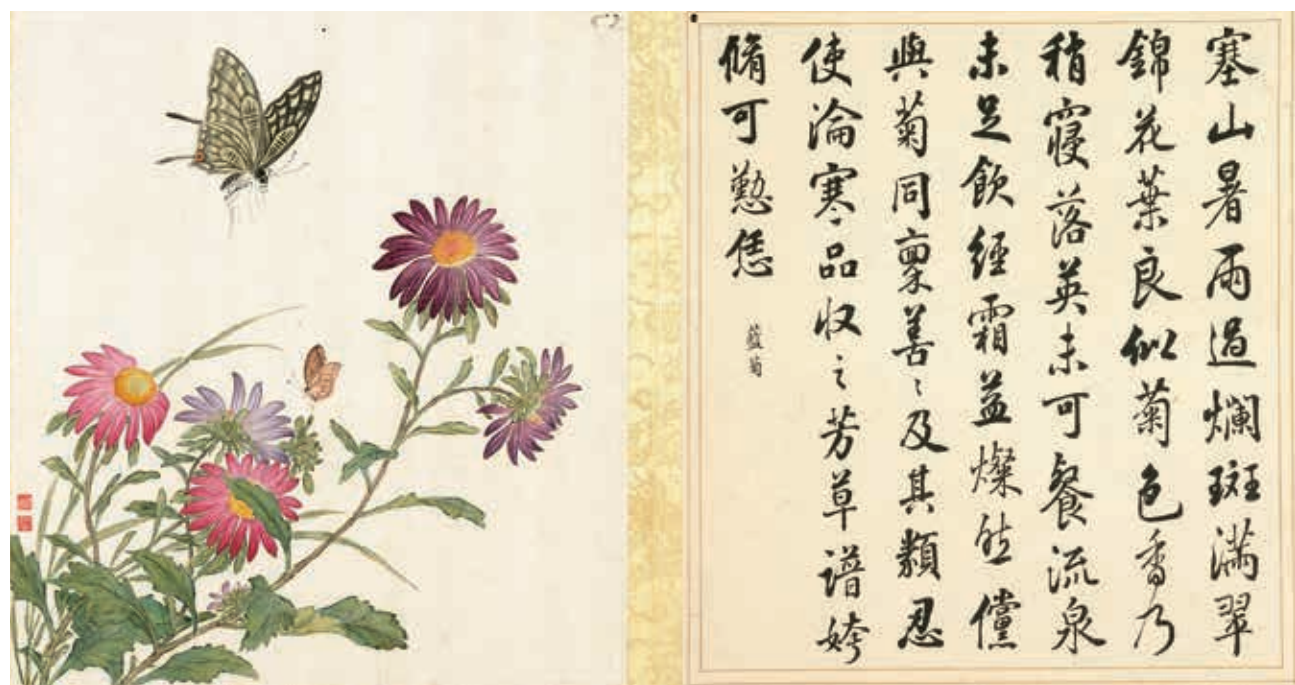 塞山暑雨過爛斑滿翠
錦花葉良似菊色香乃
稍寢落英未可餐流泉
未足飲經霜益燦然儻
與菊同稟善〻及其類忍
使淪寒品收之芳草譜姱
脩可懃恁
藍菊